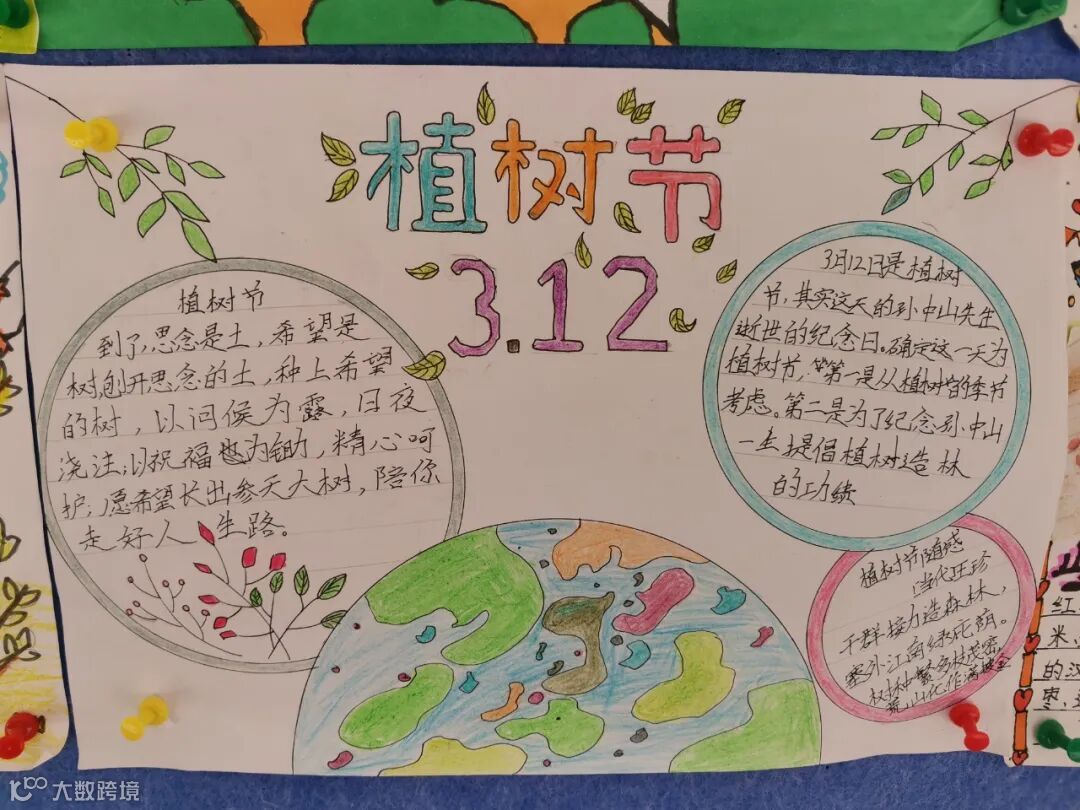 植树节
3.12
植树节
到了,思念是土,希望是
树,刨开思念的土,种上希望
的树,以问候为露,日夜
浇注;以祝福也为锄,精心呵
护;愿希望长出参天大树,陪你
走好人生路。
3月12日是植树
节,其实这天的孙中山先生
逝世的纪念日。确定这一天为
植树节,第一是从植树的季节
考虑。第二是为了纪念孙中山
一生提倡植树造林
的功绩
植树节随感
当代 珍
干群接力造森林,
塞外江南绿 荫。
树种繁多枝茂密,
荒山化作满
红
米、
的汉
枣,
大数跨境